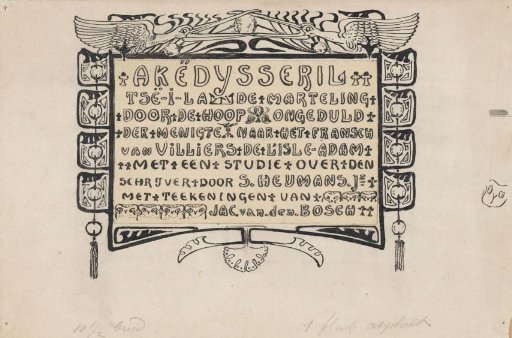 AKËDYSSERIL
TSË-I-LA DE MARTELING
DOOR DE HOOP ONGEDULD
DER MENIGTE NAAR HET FRANSCH
VAN VILLIERS DE L'ISLE-ADAM
MET EEN STUDIE OVER DEN
SCHRIJVER DOOR S. HEUMANS. Jr
MET TEEKENINGEN VAN
JAC. van. den. BOSCH